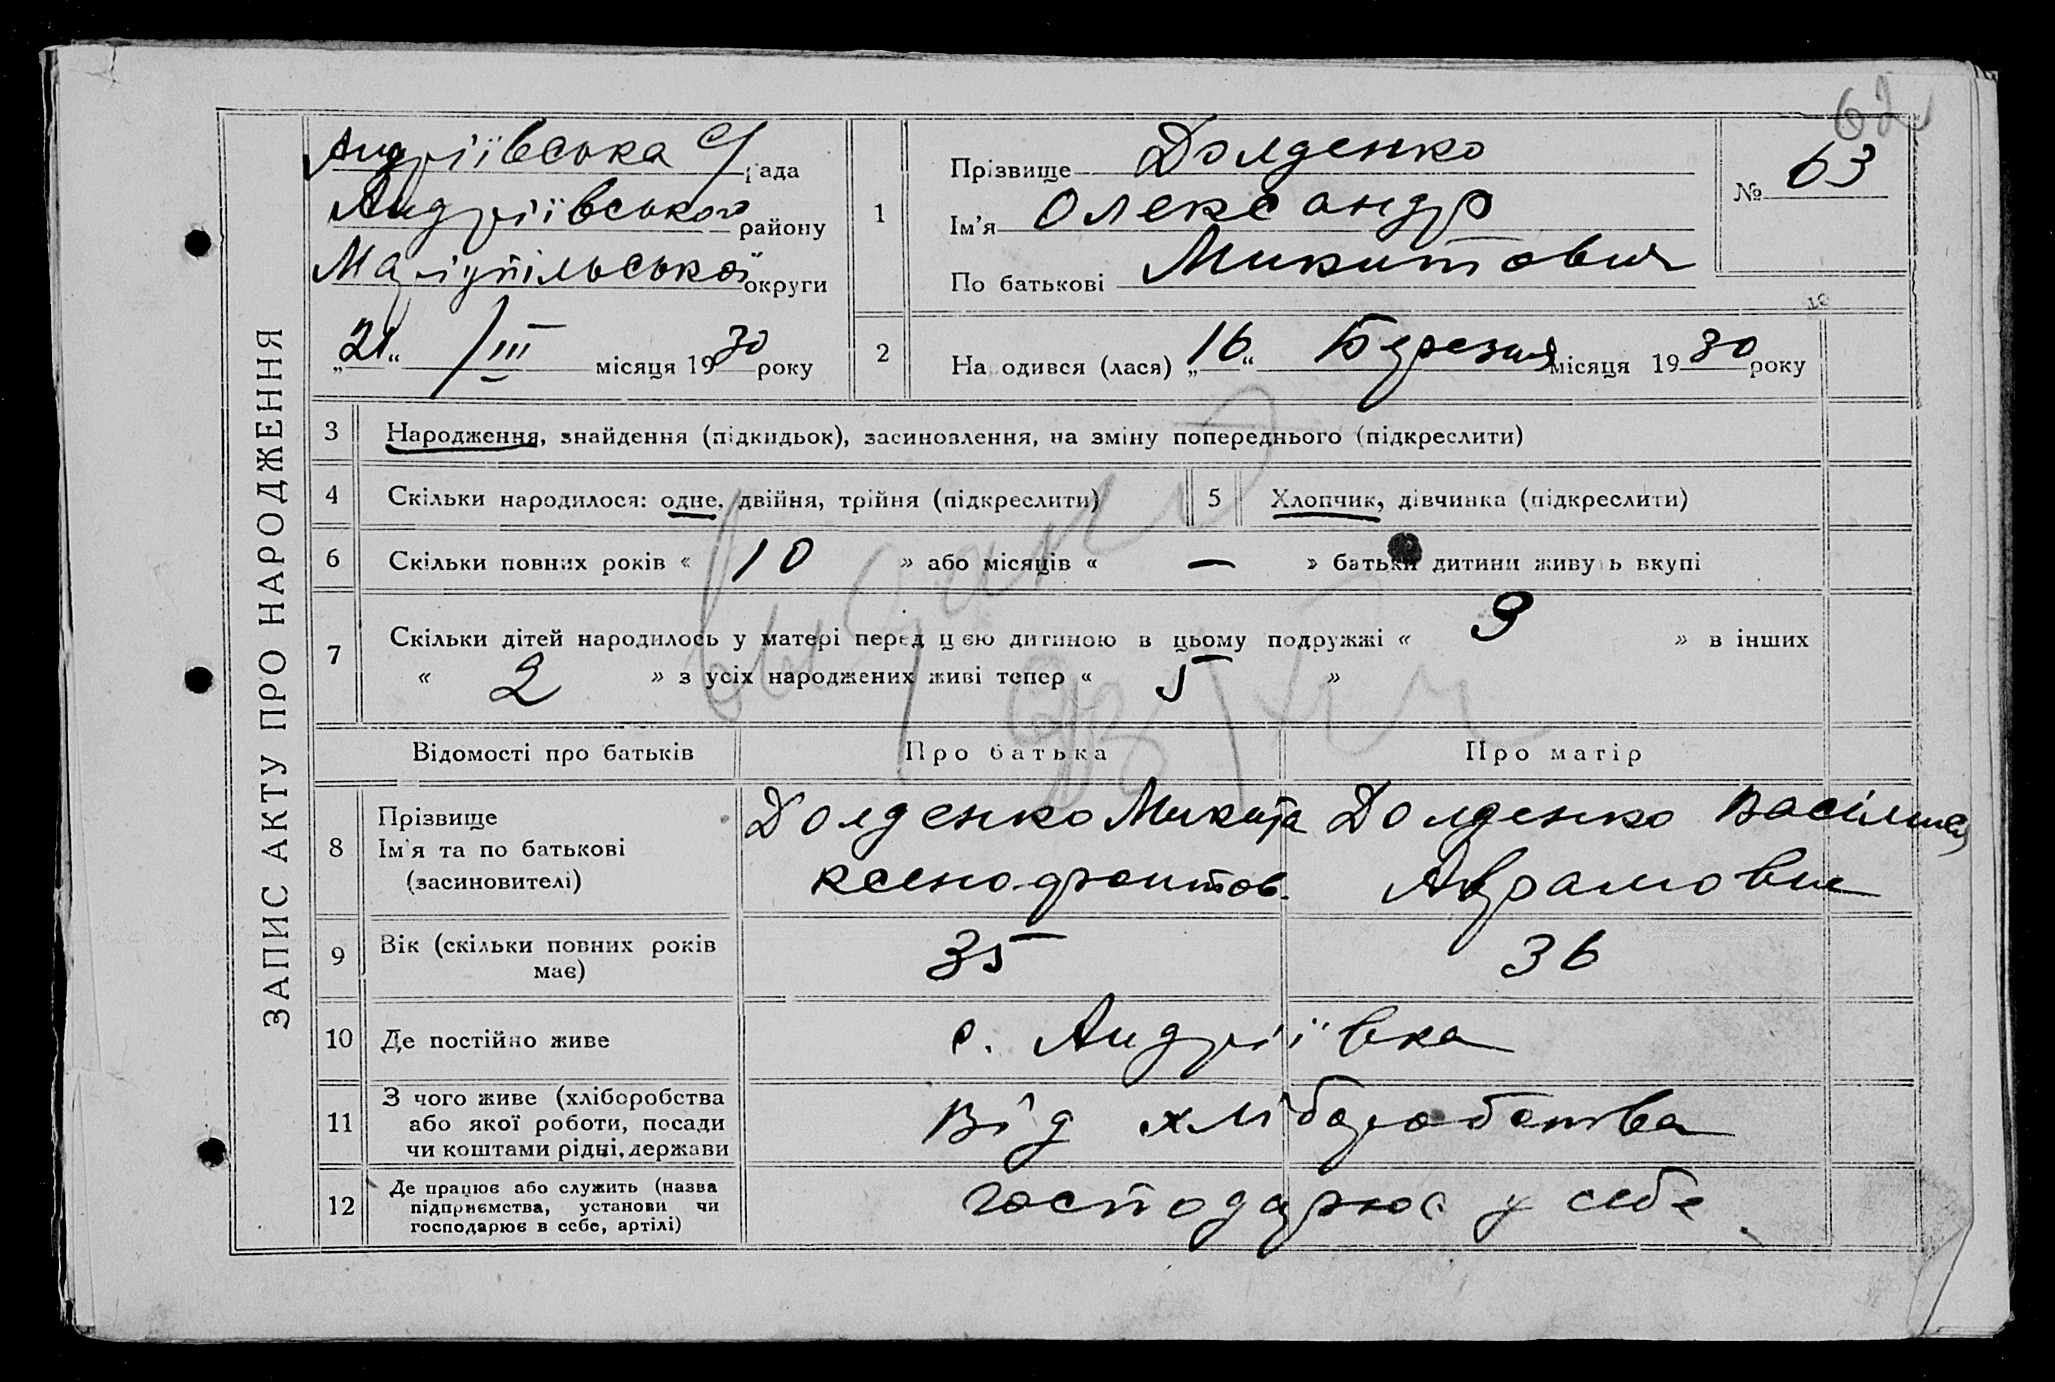 62
ЗАПИС АКТУ ПРО НАРОДЖЕННЯ
Андріївська с/рада
Андріївського району
Маріупільської округи
„21“ /III місяця 1930 року
1
Прізвище Долденко
Ім’я Олександр
По батькові Микитович
№ 63
2
Народився (лася) „16“ Березня місяця 1930 року
3 Народження, знайдення (підкидьок), засиновлення, на зміну попереднього (підкреслити)
4 Скільки народилося: одне, двійня, трійня (підкреслити) 5 Хлопчик, дівчинка (підкреслити)
6 Скільки повних років « 10 » або місяців « — » батьки дитини живуть вкупі
7 Скільки дітей народилось у матері перед цією дитиною в цьому подружжі « 3 » в інших
« 2 » з усіх народжених живі тепер « 5 »
Відомості про батьків Про батька Про матір
8 Прізвище
Ім’я та по батькові
(засиновителі)
Долденко Микита
Ксенофонтов.
Долденко
Аврамовна
9 Вік (скільки повних років
має)
35 36
10 Де постійно живе с. Андріївка
11 З чого живе (хліборобства
або якої роботи, посади
чи коштами рідні, держави
Від хліборобства
12 Де працює або служить (назва
підприємства, установи чи
господарює в себе, артілі)
господарює у себе